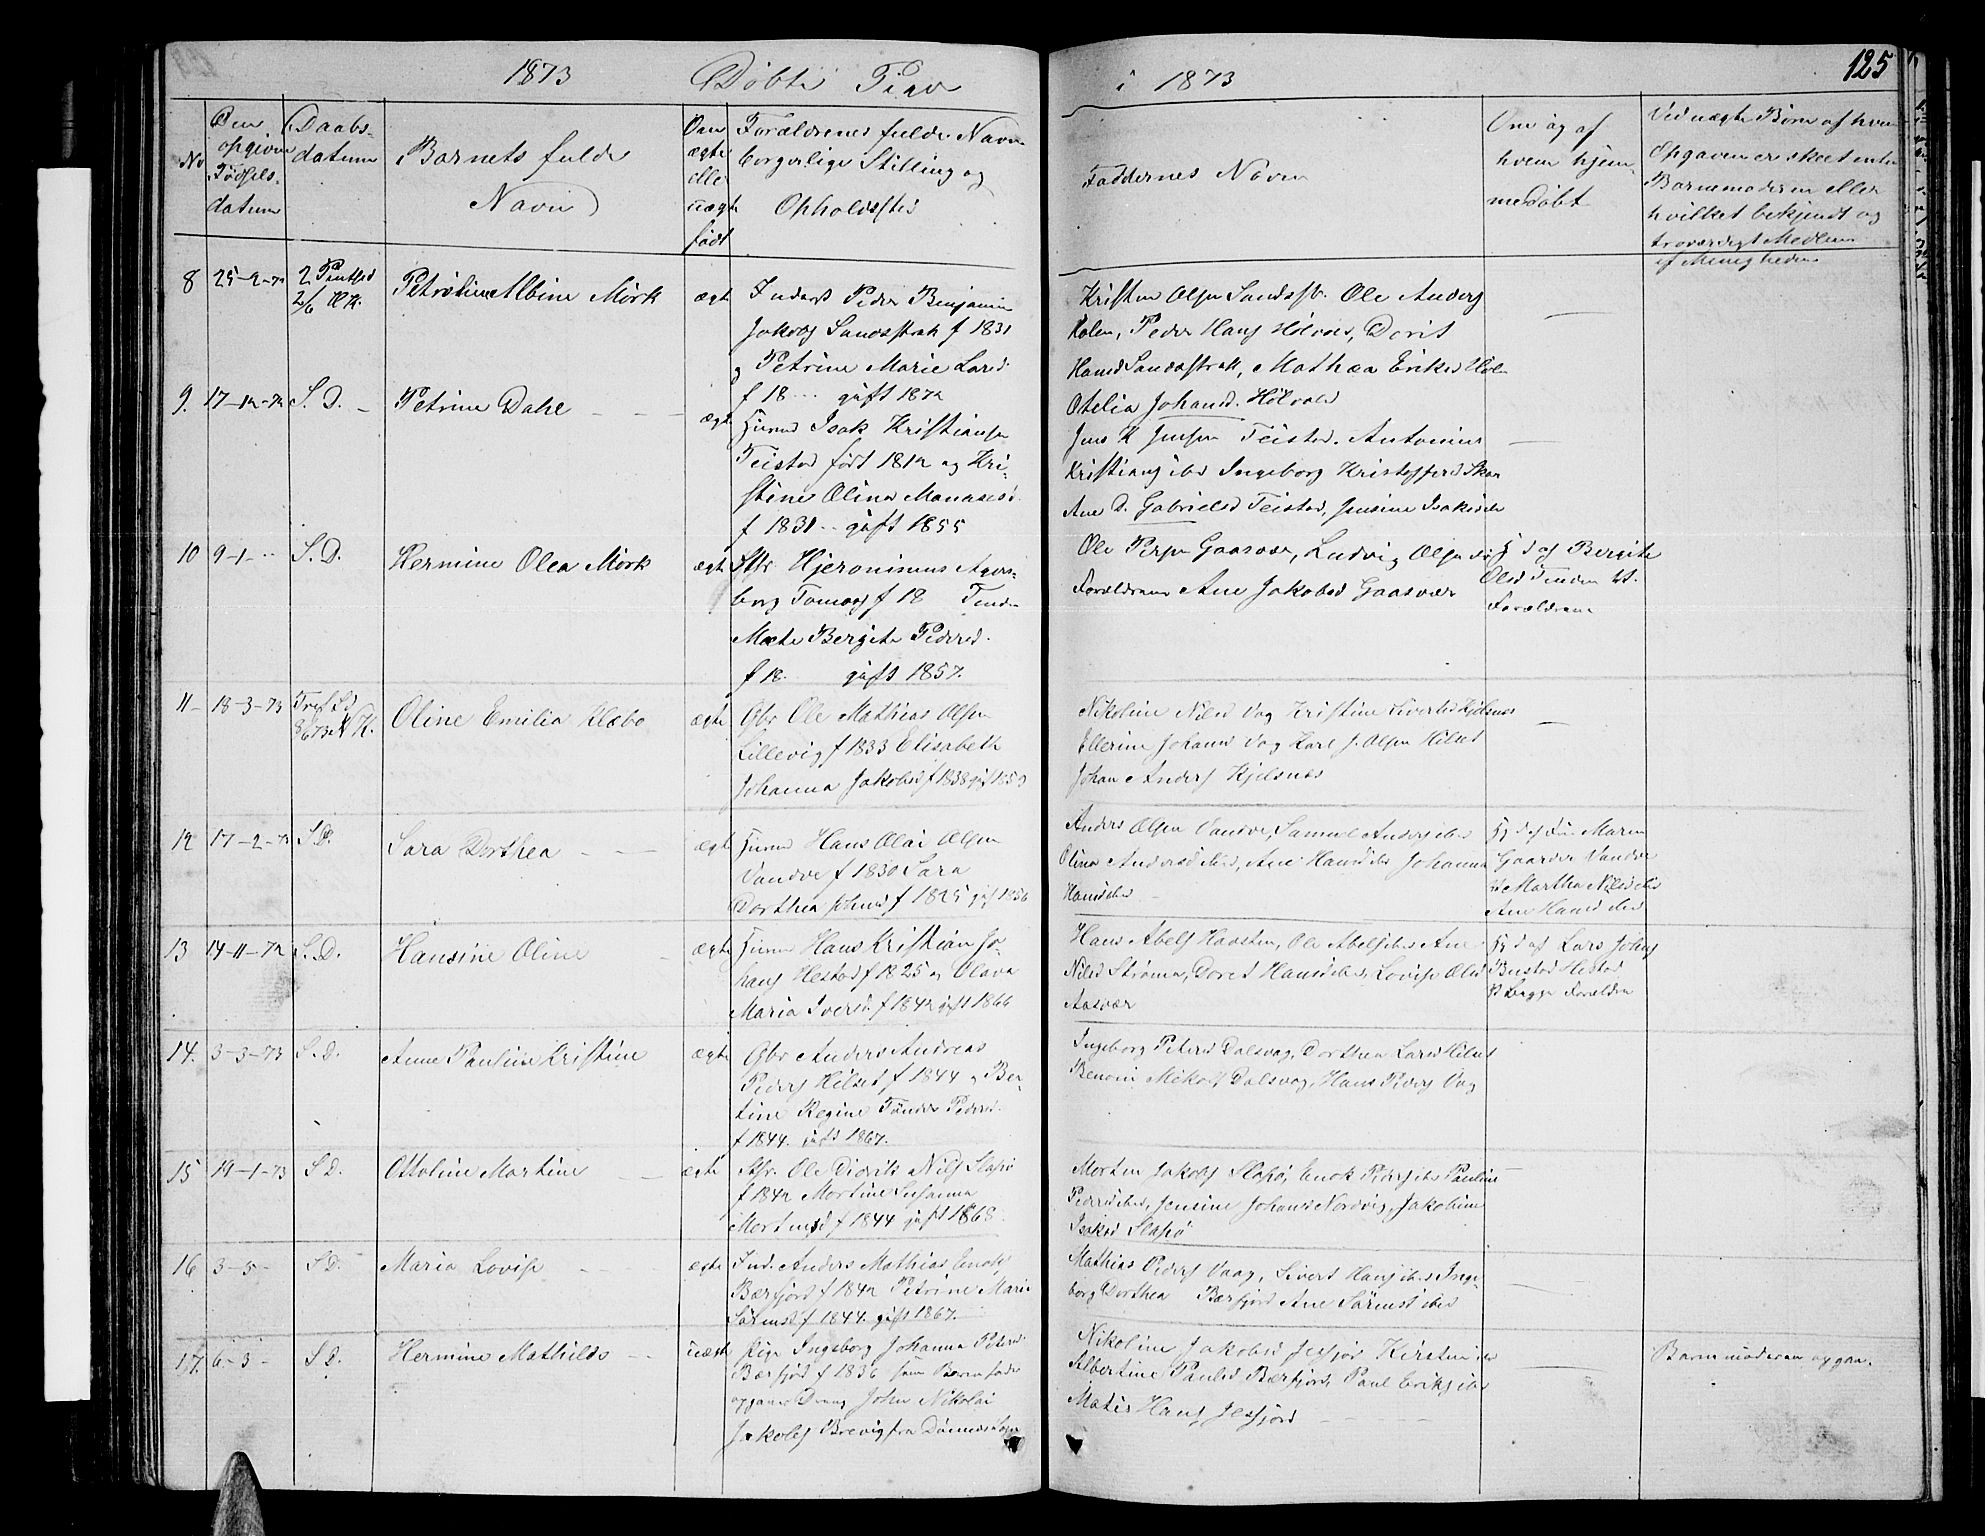 1873 Døbte Piger i 1873 125
No
Den opgivne Fødsels-datum
Daabs-datum
Barnets fulde Navn
Om ægte eller uægte født
Forældrenes fulde Navn borgerlige Stilling og Opholdssted
Faddernes Navn
Om og af hvem hjemmedøbt
Ved uægte Børn af hvem Opgaven er skeet enten Barnemoderen eller hvilket bekjendt og troværdigt Medlem af Menigheden
8 2 Pintsed 2/6 Petroline Albine Mørk ægte
Inderst Peder Benjamin
Jakobs Sandsstrak f 1831
og Petrine Marie Larsd
f 18 ... gift 1872
Kristen Olsen Ole Anders
Holm, Peder Hans Dorit
Hansd Sandsstrak, Mathea Eriksd
Otelia Johansd.
9. 17-12-72 S. D. Petrine Dahl ægte
Huusmd Isak Kristiansen
Teistad født 1812 og Kri-
stine Oline Manasesd.
f 1831 .. gift 1855
Jens K Jensen Teistad. Antonius
Kristians ibd Ingeborg Kristoffersd
Ane D. Gabrielsd Teistad, Jensine Isaksd ibd
10 9-1- S. D. Hermine Olea Mørk ægte
Hjeronimus Agers-
borg f 18
Mæte Bergite Pedersd.
f 18. gift 1857.
Ole Persen Gaasvær, Ludvig Olsen
Forældrene Ane Jakobsd Gaasvær
Hj d af Bergite
Olsd
Forældrene
11 18-3-73 Tref Sd 8/6 73 Oline Emilia Klæbo ægte
Gbr Ole Mathias Olsen
Lillevig f 1833 Elisabeth
Johanna Jakobsd f 1838 gift
Nikoline Nilsd Vag Kristine Sivertsd Kjelsnes
Ellerine Johansd Vag Karl J. Olsen Hilset
Johan Anders Kjelsnes
12 17-2-73 S. D. Sara Dorthea ægte
Huusmd Hans Olai Olsen
Vandve f 1830 Sara
Dorthea Johnsd f 1825 gift 1856
Anders Olsen Vandve, Samuel Anders ibd
Olina Andersd ibd, Ane Hansd ibd Johanna
Hansd ibd
Hj d af Maren
Gaarder Vandve
Martha Nilsd ibd
Ane Hansd ibd
13 14-11-72 S. D. Hansine Oline ægte
Huusmd Hans Kristian Jo-
hans Hestad f 1825 og Olava
Maria Iversd. f 1842 gift 1866
Hans Abels Havsten, Ole Abels ibd Ane
Nilsd Strømen, Doret Hansd ibd, Lovise Olsd
Aasvær
Hj d af Lars Johns
Bustad Hestad
begge Forældre
14. 3-3-73 S. D. Anne Pauline Kristine ægte
Gbr Anders Andreas
Peders Hilset f 1844 og Ber-
tine Regine Tønder Pedersd.
f 1844. gift 1867.
Ingeborg Petersd Dalsvag, Dorthea Larsd Hilset
Benoni Mikals Dalsvag, Hans Peders Vag
15 19-1-73 S D. Ottoline Martine ægte
Ole Didrik Nils Slapø
f 1842 Martine Susanna
Mortensd f 1844 gift 1868.
Morten Jakobs Slapø, Enok Peders ibd Pauline
Pedersd ibd, Jensine Johansd Nordvig, Jakobine
Isaksd Slapø
16 3-5- S D. Maria Lovise ægte
Ind. Anders Mathias Enoks
Bærfjord f 1842 Petrine Marie
Sørensd f 1844. gift 1867.
Mathias Peders Vaag, Sivert Hans ibd Inge-
borg Dorthea Bærfjord Ane Sørensd ibd
17. 6-3- S D. Hermine Mathilde uægte
Pige Ingeborg Johanna Petersd
Bærfjord f 1836 som Barnefader
opgaves Dreng John Nikolai
Jakobs Brevig fra Dønnes Sogn
Nikoline Jakobsd Jesfjord Kirsten ibd
Albertine Paulsd Bærfjord, Paul Eriks ibd
Matis Hans Jesfjord
Barnemoderen opgav.